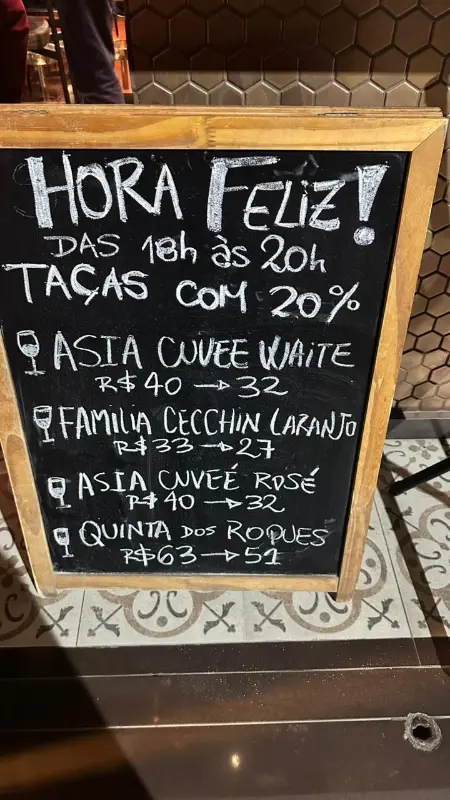 HORA FELIZ!
DAS 18h às 20h
TAÇAS COM 20%
ASIA CUVEE WAITE
R$ 40 → 32
FAMILIA CECCHIN LARANJO
R$ 33 → 27
ASIA CUVEÉ ROSÉ
R$ 40 → 32
QUINTA DOS ROQUES
R$ 63 → 51